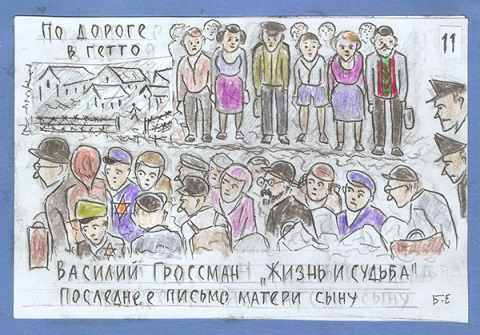 ПО ДОРОГЕ
В ГЕТТО
11
ВАСИЛИЙ ГРОССМАН „ЖИЗНЬ И СУДЬБА"
ПОСЛЕДНЕЕ ПИСЬМО МАТЕРИ СЫНУ
Б-Е